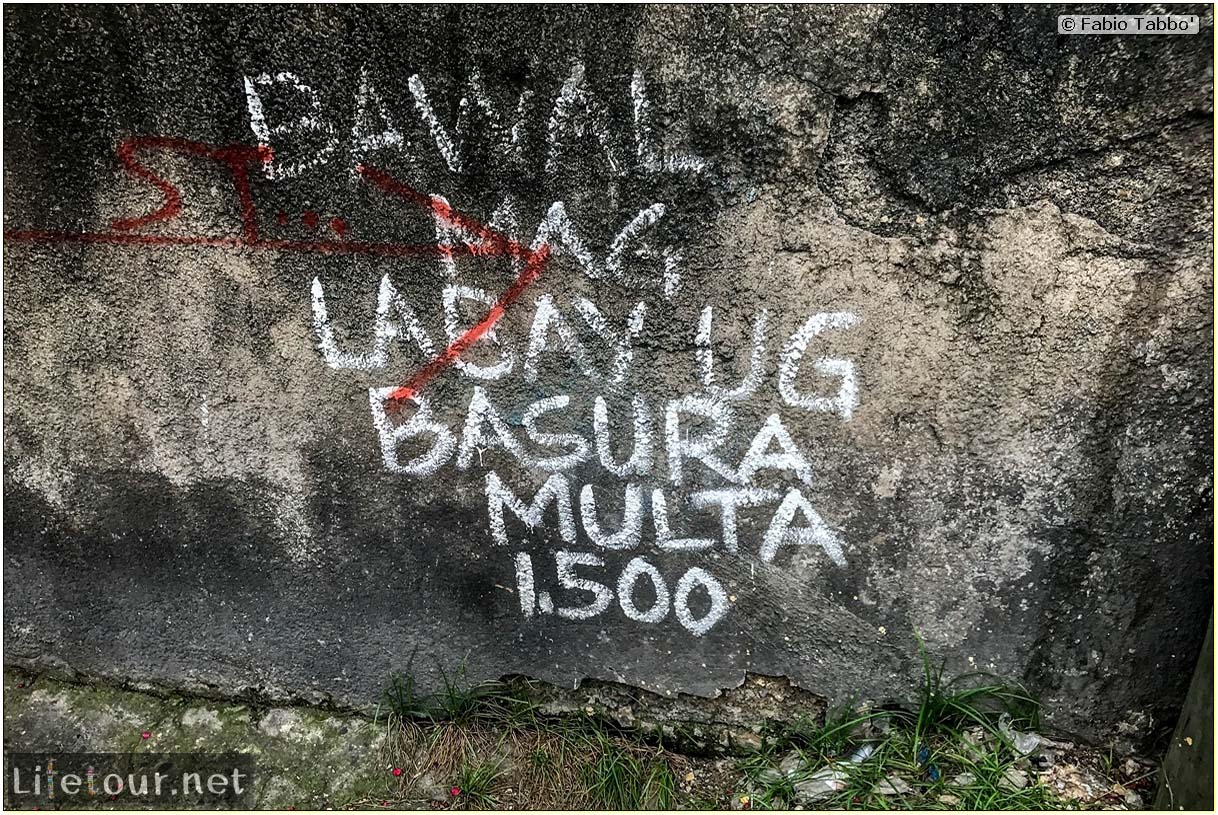 © Fabio Tabbo'
BAWAL
ST....
MAG
LABAY UG
BASURA
MULTA
1.500
Lifetour.net